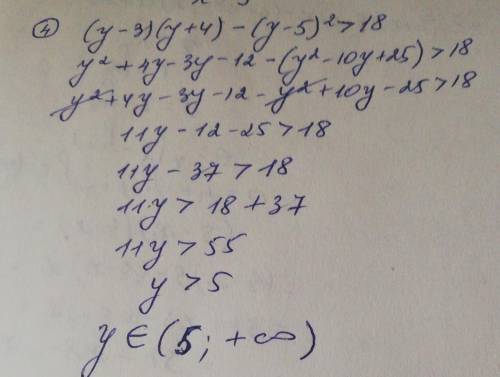 ④ (y-3)(y+4)-(y-5)²>18
y²+4y-3y-12-(y²-10y+25)>18
y²+4y-3y-12-y²+10y-25>18
11y-12-25>18
11y-37>18
11y>18+37
11y>55
y>5
y∈(5;+∞)